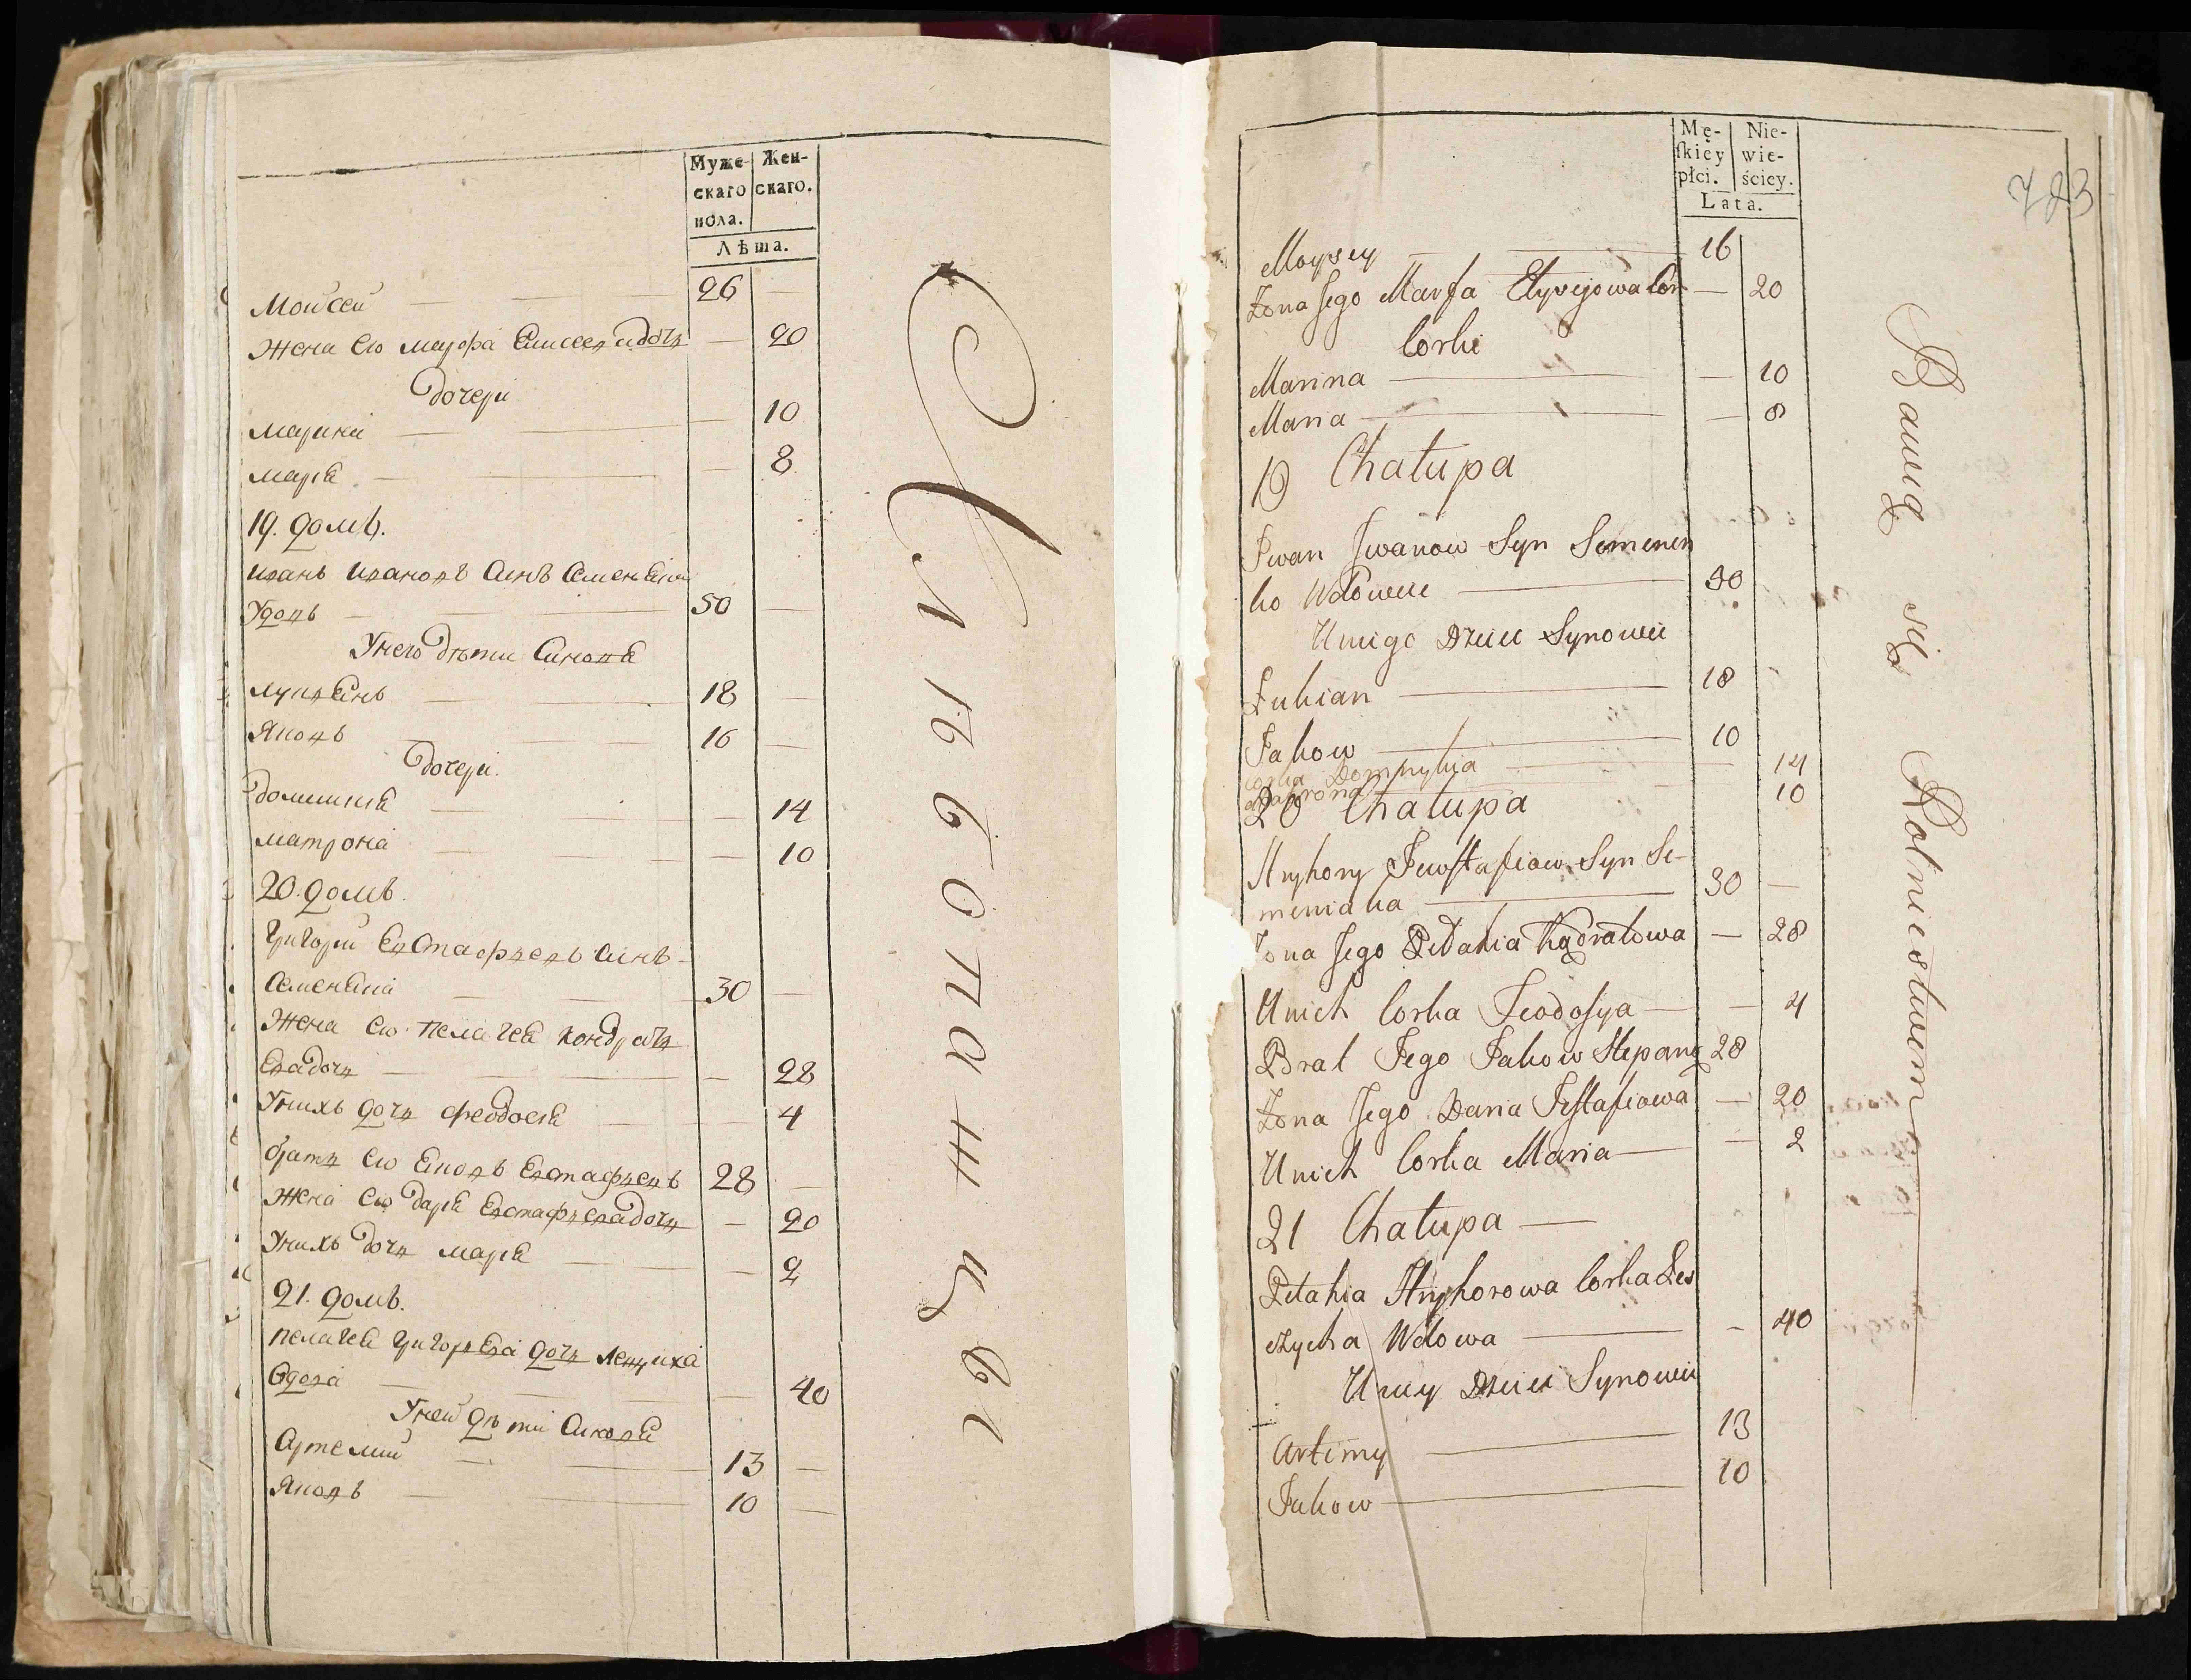 Муже-
скаго
пола.
Жен-
скаго.
Лѣта.
Моисей — 26 —
Жена ево Марфа Елисеевидочь — 20
дочери
Марина — 10
Марія — 8
19. домъ.
Иванъ Ивановъ синъ Семеняка
Удовъ — 50 —
У него дѣти Синовя
Лукъянъ — 18 —
Яковъ — 16 —
дочери
Домникія — 14
Матрона — 10
20. домъ.
Григорій Евстафьевъ синъ
Семеняка — 30 —
Жена ево Пелагея Кондратъ
Евадочь — 28
У нихъ дочь Феодосія — 4
братъ ево Яковъ Евстафьевъ 28 —
Жена ево Дарія Евстафьевадочь — 20
У нихъ дочь Марія — 2
21. домъ.
Пелагея Григорьева дочь
Вдова — 40
У ней дѣти Синовя
Артемий — 13 —
Яковъ — 10 —
Mę-
skiey
płci.
Nie-
wie-
ściey.
Lata.
723
Moysey — 16
Zona Jego Marfa Elysejowa Cor — 20
Corki
Marina — 10
Maria — 8
19 Chałupa
Iwan Iwanow Syn Semenen
ko Wdowiec — 50
U niego Dzieci Synowie
Łukian — 18
Jakow — 10
Corka Domnykia — 14
Matrona — 10
20 Chałupa
Hryhory Jewstafiow Syn Se-
meniaka — 30 —
Zona Jego Pelahia Kądratowa — 28
U nich Corka Feodosya — 4
Brat Jego Jakow Stepang 28
Zona Jego Daria Jestafiowa — 20
U nich Corka Maria — 2
21 Chałupa —
Pelahia Hryhorowa Corka Les
czycha Wdowa — 40
U niey Dzieci Synowie
Artimy — 13
Jakow — 10
Bawią się Rolnictwem